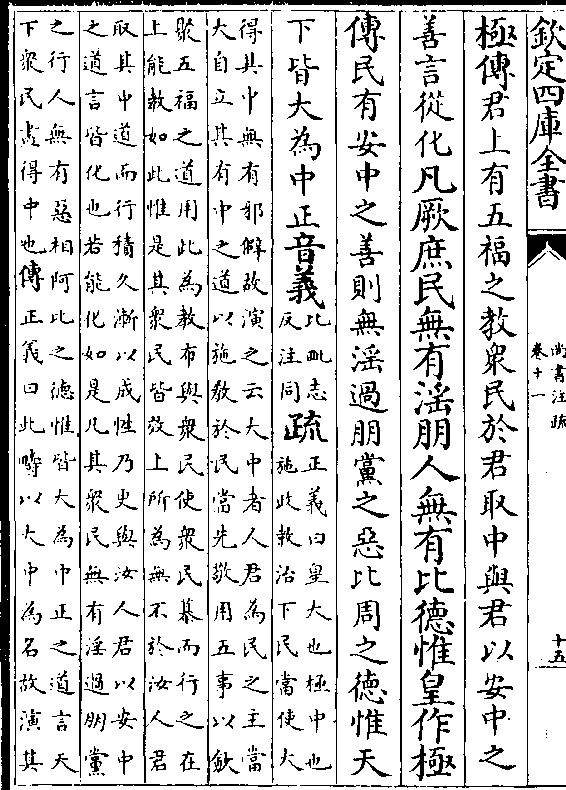 欽定四庫全書
尚書注疏
卷十一
十五
極傳君上有五福之教衆民於君取中與君以安中之
善言從化凡厥庶民無有淫朋人無有比德惟皇作極
傳民有安中之善則無淫過朋黨之惡比周之德惟天
下皆大為中正音義比毗志
反注同疏正義曰皇大也極中也
施政教治下民當使大
得其中無有邪僻故演之云大中者人君為民之主當
大自立其有中之道以施教於民當先敬用五事以斂
聚五福之道用此為教布與衆民使衆民慕而行之在
上能教如此惟是其衆民皆效上所為無不於汝人君
取其中道而行積久漸以成性乃更與汝人君以安中
之道言皆化也若能化如是凡其衆民無有淫過朋黨
之行人無有惡相阿比之德惟皆大為中正之道言天
下衆民盡得中也傳正義曰此疇以大中為名故演其